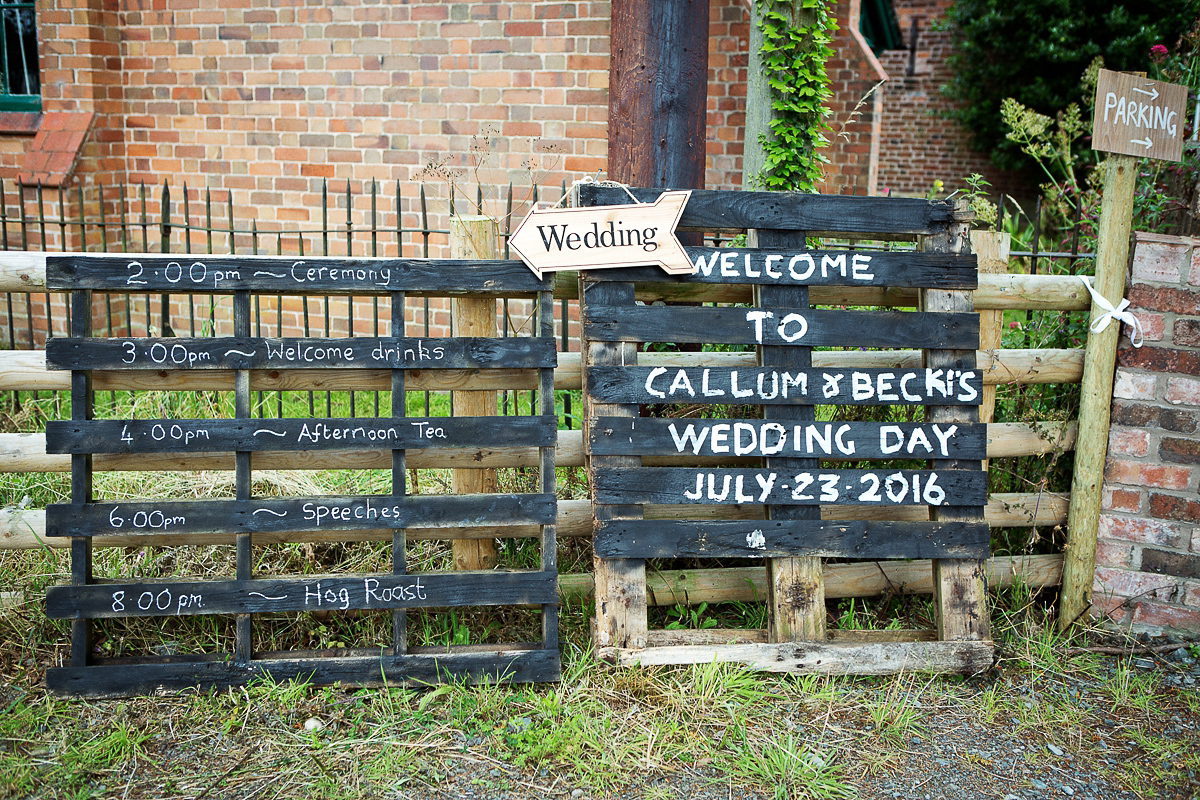 2.00pm ~ Ceremony
3.00pm ~ Welcome drinks
4.00pm ~ Afternoon Tea
6.00pm ~ Speeches
8.00pm ~ Hog Roast
Wedding
WELCOME
TO
CALLUM & BECKI'S
WEDDING DAY
JULY·23·2016
→
PARKING
→